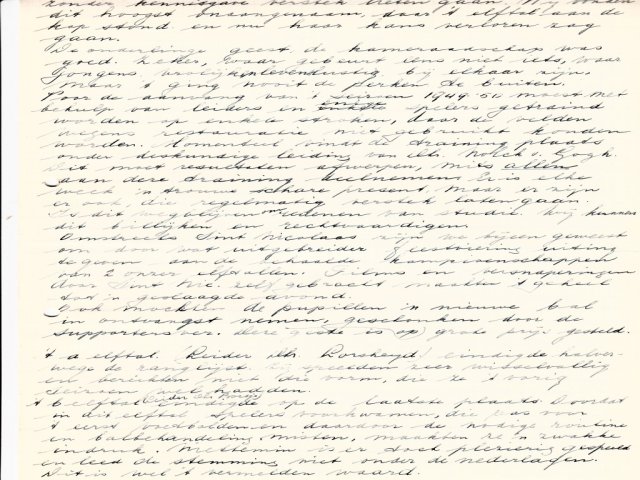 zonder kennisgave verstek lieten gaan. Wij vonden
dit hoogst onaangenaam, daar 't elftal aan de
kop stond en nu haar kans verloren zag
gaan.
De onderlinge geest de kameraadschap was
goed. Zeker, waar gebeurt eens niet iets, waar
jongens, vroolijk en levenslustig bij elkaar zijn,
maar 't ging nooit de perken te buiten.
Voor de aanvang van 't seizoen 1949-50 moest met
behulp van leiders en enige spelers getraind
worden op enkele stroken, daar de velden
wegens restauratie niet gebruikt konden
worden. Momenteel vindt de training plaats
onder deskundige leiding van dhr.
Dit moet resultaten afwerpen, mits allen
aan deze training deelnemen. Er is elke
week 'n trouwe schare present, maar er zijn
er ook, die regelmatig verstek laten gaan.
Is dit wegblijven om redenen van studie. Wij kunnen
dit billijken en rechtvaardigen.
Omstreeks Sint Nicolaas zijn we bijeen geweest
om door wat uitgebreider feestviering uiting
te geven aan de behaalde kampioenschappen
van 2 onzer elftallen. Films en versnaperingen
door Sint Nic. zelf gebracht maakten 't geheel
tot 'n geslaagde avond.
Ook mochten de pupillen 'n nieuwe bal
in ontvangst nemen, geschonken door de
supportersver. Deze geste is op grote prijs gesteld.
't a elftal. (Leider dhr. ) eindigde halver-
wege de ranglijst. Zij speelden zeer wisselvallig
en bereikten niet die vorm, die ze 't vorig
seizoen wel hadden.
't b elftal eindigde op de laatste plaats. Doordat
in dit elftal spelers voorkwamen, die pas voor
't eerst voetbalden en daardoor de nodige routine
en balbehandeling misten, maakten ze 'n zwakke
indruk. Niettemin is er stoot plezierig gespeeld
en leed de stemming niet onder de nederlagen.
Dit is wel 't vermelden waard.